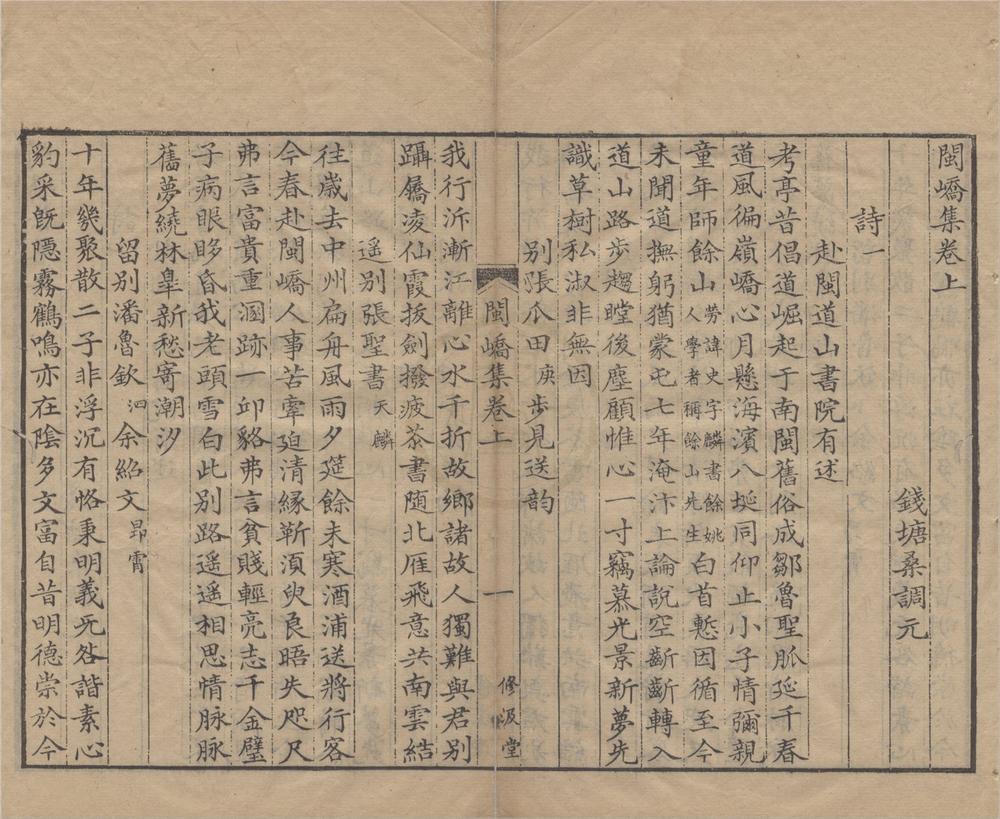 閩嶠集卷上
錢塘桑調元
詩一
赴閩道山書院有述
考亭昔倡道崛起于南閩舊俗成鄒魯聖脈延千春
道風徧嶺嶠心月懸海濱八埏同仰止小子情彌親
童年師餘山勞諱史字麟書餘姚人學者稱餘山先生白首慙因循至今
未聞道撫躬猶蒙屯七年淹汴上論説空齗齗轉入
道山路步趨瞠後塵顧惟心一寸竊慕光景新夢先
識草樹私淑非無因
别張瓜田庚步見送韵
閩嶠集卷上
一
修汲堂
我行泝漸江離心水千折故鄉諸故人獨難與君别
躡屩凌仙霞拔劍撥疲苶書随北雁飛意共南雲結
遥别張聖書天麟
往歲去中州扁舟風雨夕筵餘未寒酒浦送將行客
今春赴閩嶠人事苦牽廹清緣靳湏臾良晤失咫尺
弗言富貴重溷跡一邱貉弗言貧賤輕亮志千金璧
子病眼眵昏我老頭雪白此别路遥遥相思情脉脉
舊夢繞林臯新愁寄潮汐
留别潘魯欽泗余紹文昂霄
十年幾聚散二子非浮沉有恪秉明義旡咎諧素心
豹采旣隱霧鶴鳴亦在陰多文富自昔明德崇於今